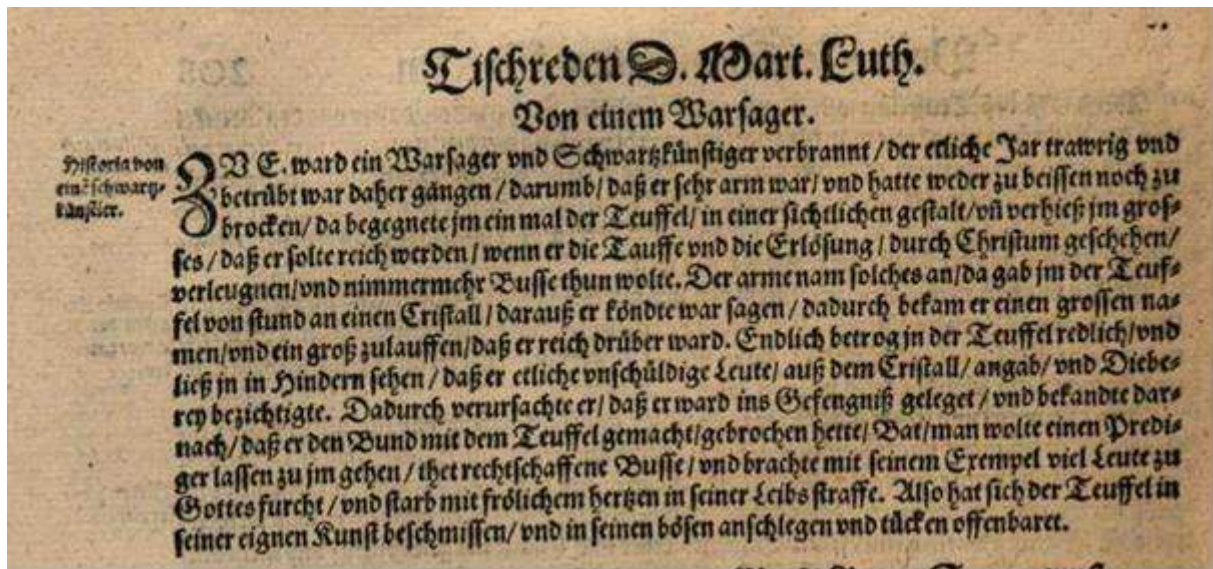 Tischreden D. Mart. Luth.
Von einem Warsager.
Historia von
einē schwartz-
künstler.
ZV E. ward ein Warsager vnd Schwartzkünstiger verbrannt / der etliche Jar trawrig vnd
betrübt war daher gangen / darumb / daß er sehr arm war / vnd hatte weder zu beissen noch zu
brocken / da begegnete jm ein mal der Teuffel / in einer sichtlichen gestalt / vñ verhieß jm gros-
ses / daß er solte reich werden / wenn er die Tauffe vnd die Erlösung / durch Christum geschehen /
verleugnen / vnd nimmermehr Busse thun wolte. Der arme nam solches an / da gab jm der Teuf-
fel von stund an einen Cristall / darauß er köndte war sagen / dadurch bekam er einen grossen na-
men / vnd ein groß zulauffen / daß er reich drüber ward. Endlich betrog jn der Teuffel redlich / vnd
ließ jn in Hindern sehen / daß er etliche vnschüldige Leute / auß dem Cristall / angab / vnd Diebe-
rey bezichtigte. Dadurch verursachte er / daß er ward ins Gefengniß geleget / vnd bekandte dar-
nach / daß er den Bund mit dem Teuffel gemacht / gebrochen hette / Bat / man wolte einen Predi-
ger lassen zu jm gehen / thet rechtschaffene Busse / vnd brachte mit seinem Exempel viel Leute zu
Gottes furcht / vnd starb mit frölichem hertzen in seiner Leibs straffe. Also hat sich der Teuffel in
seiner eignen Kunst beschmissen / vnd in seinen bösen anschlegen vnd tücken offenbaret.